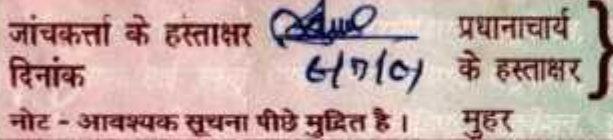 जांचकर्त्ता के हस्ताक्षर प्रधानाचार्य
दिनांक 6/7/01 के हस्ताक्षर
नोट - आवश्यक सूचना पीछे मुद्रित है। मुहर